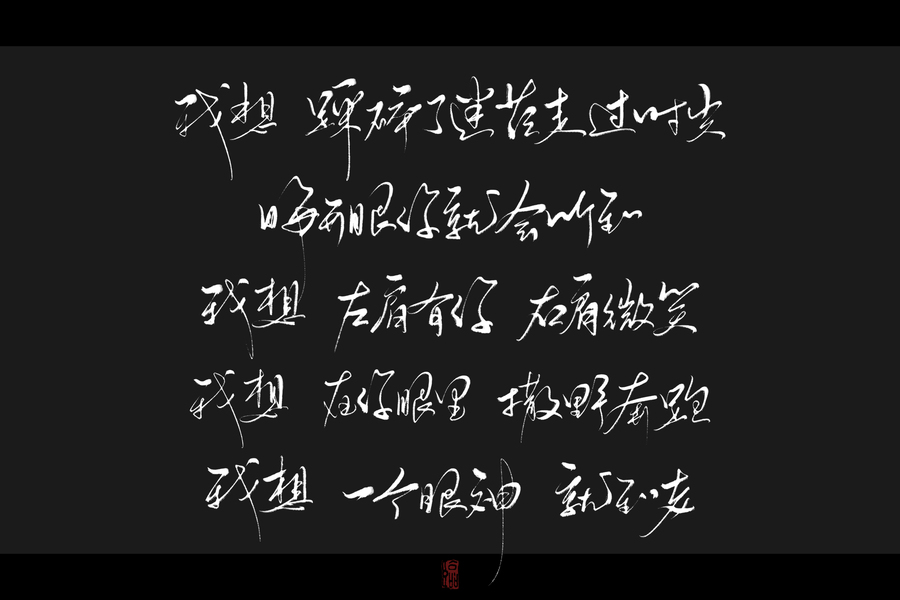 我想 踩碎了迷茫走过时光
睁开眼你就会听到
我想 左肩有你 右肩微笑
我想 在你眼里 撒野奔跑
我想 一个眼神 就到老